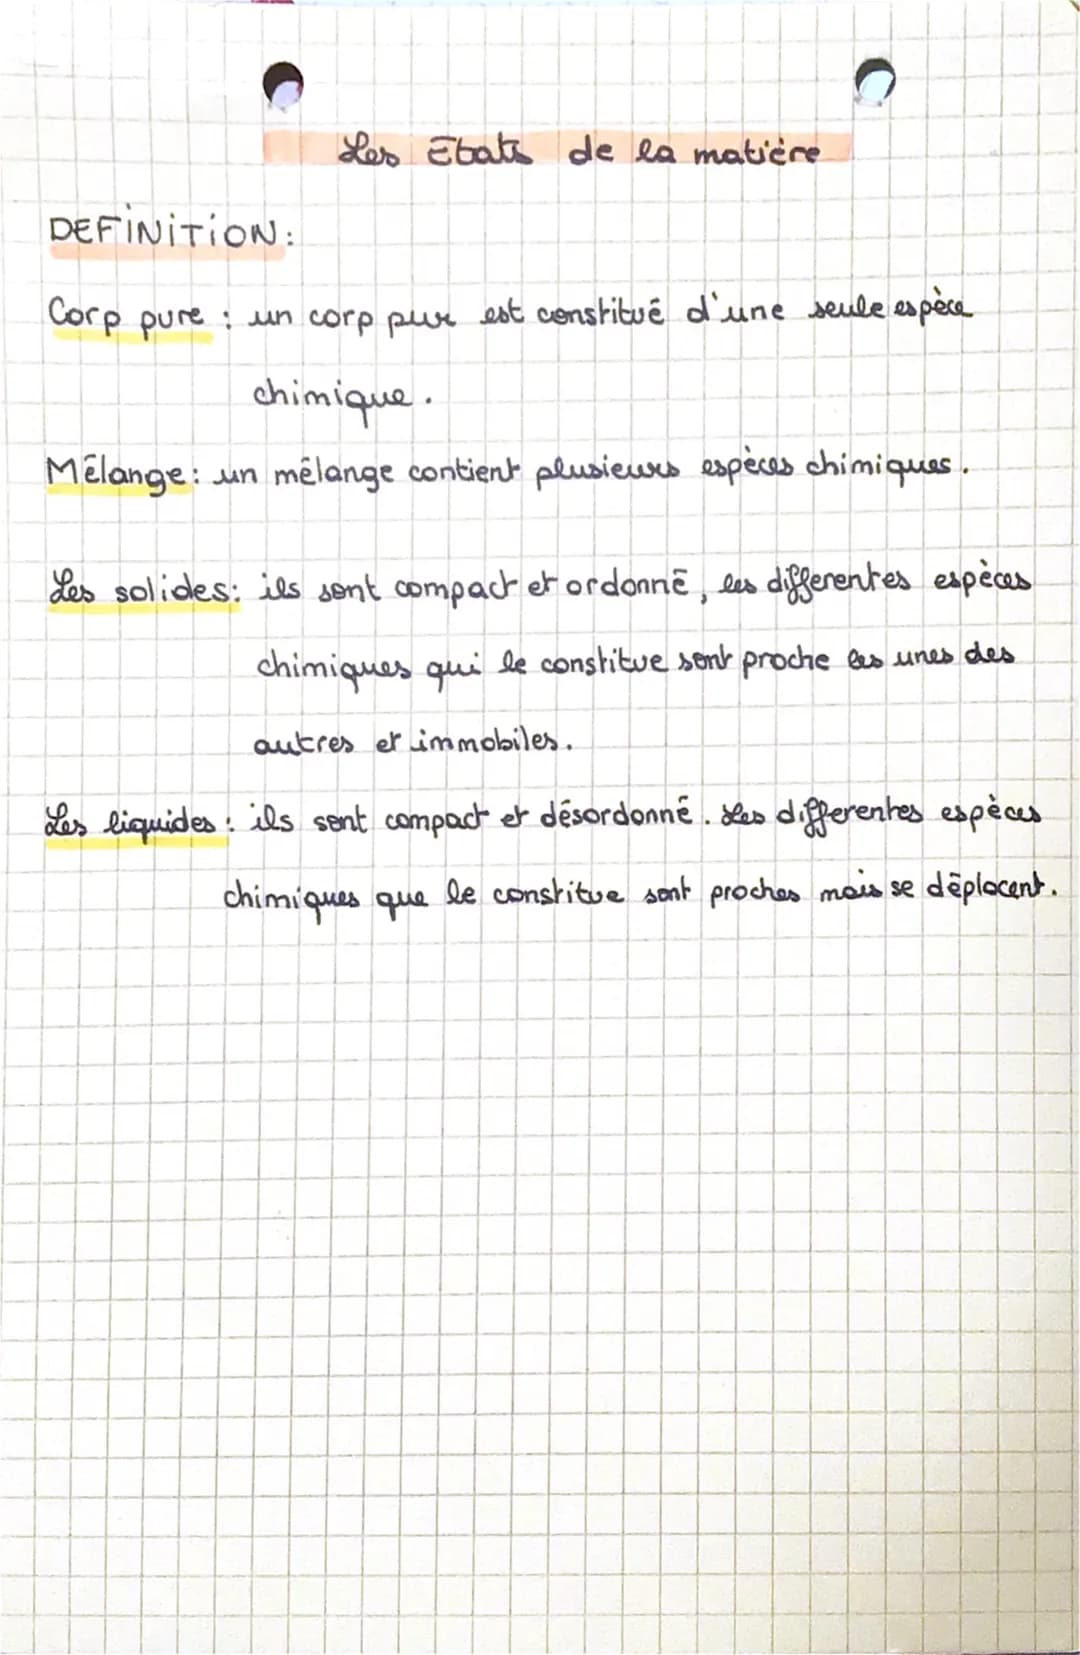 Les Etats de la matière
DEFINITION:
Corp pure : un corp pur est constitué d'une seule espèce
chimique.
Mélange: un mélange contient plusieurs espèces chimiques.
Les solides: ils sont compact et ordonné, les differentes espèces
chimiques qui le constitue sont proche les unes des
autres et immobiles.
Les liquides : ils sont compact et désordonné. Les differentes espèces
chimiques que le constitue sont proches mais se déplacent.